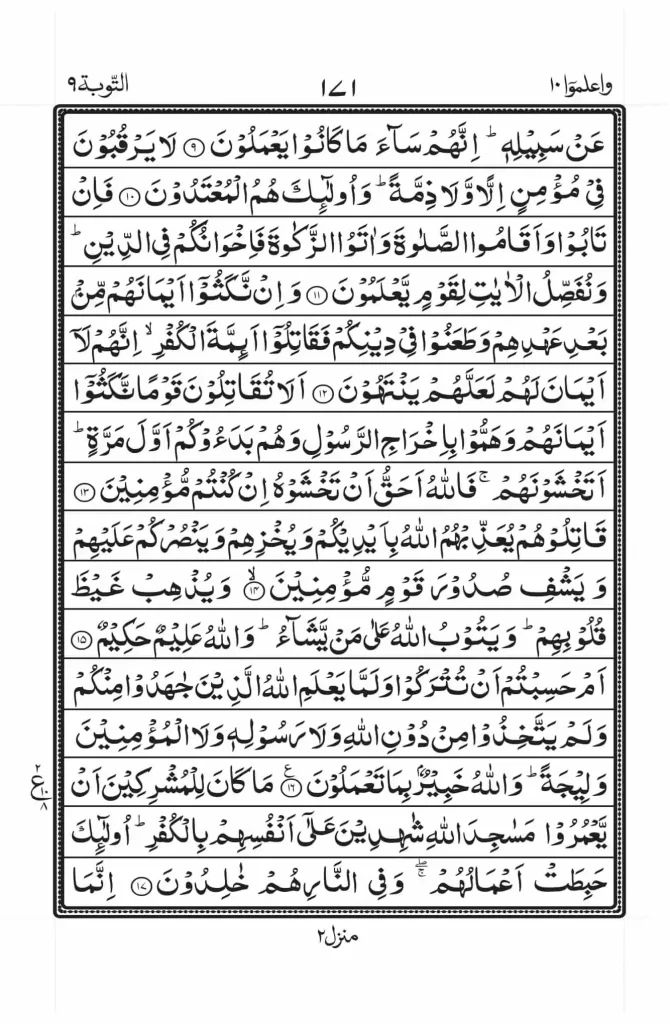 واعلموٓا ١٠ ١٧١ التّوبة ٩
عَنْ سَبِيْلِهٖ ؕ اِنَّهُمْ سَآءَ مَا كَانُوْا يَعْمَلُوْنَ ﴿۹﴾ لَا يَرْقُبُوْنَ
فِيْ مُؤْمِنٍ اِلًّا وَّلَا ذِمَّةً ؕ وَاُولٰٓئِكَ هُمُ الْمُعْتَدُوْنَ ﴿۱۰﴾ فَاِنْ
تَابُوْا وَاَقَامُوا الصَّلٰوةَ وَاٰتَوُا الزَّكٰوةَ فَاِخْوَانُكُمْ فِي الدِّيْنِ ؕ
وَنُفَصِّلُ الْاٰيٰتِ لِقَوْمٍ يَّعْلَمُوْنَ ﴿۱۱﴾ وَاِنْ نَّكَثُوْٓا اَيْمَانَهُمْ مِّنْۢ
بَعْدِ عَهْدِهِمْ وَطَعَنُوْا فِيْ دِيْنِكُمْ فَقَاتِلُوْٓا اَئِمَّةَ الْكُفْرِ ۙ اِنَّهُمْ لَآ
اَيْمَانَ لَهُمْ لَعَلَّهُمْ يَنْتَهُوْنَ ﴿۱۲﴾ اَلَا تُقَاتِلُوْنَ قَوْمًا نَّكَثُوْٓا
اَيْمَانَهُمْ وَهَمُّوْا بِاِخْرَاجِ الرَّسُوْلِ وَهُمْ بَدَءُوْكُمْ اَوَّلَ مَرَّةٍ ؕ
اَتَخْشَوْنَهُمْ ۚ فَاللّٰهُ اَحَقُّ اَنْ تَخْشَوْهُ اِنْ كُنْتُمْ مُّؤْمِنِيْنَ ﴿۱۳﴾
قَاتِلُوْهُمْ يُعَذِّبْهُمُ اللّٰهُ بِاَيْدِيْكُمْ وَيُخْزِهِمْ وَيَنْصُرْكُمْ عَلَيْهِمْ
وَيَشْفِ صُدُوْرَ قَوْمٍ مُّؤْمِنِيْنَ ۙ﴿۱۴﴾ وَيُذْهِبْ غَيْظَ
قُلُوْبِهِمْ ؕ وَيَتُوْبُ اللّٰهُ عَلٰى مَنْ يَّشَآءُ ؕ وَاللّٰهُ عَلِيْمٌ حَكِيْمٌ ﴿۱۵﴾
اَمْ حَسِبْتُمْ اَنْ تُتْرَكُوْا وَلَمَّا يَعْلَمِ اللّٰهُ الَّذِيْنَ جٰهَدُوْا مِنْكُمْ
وَلَمْ يَتَّخِذُوْا مِنْ دُوْنِ اللّٰهِ وَلَا رَسُوْلِهٖ وَلَا الْمُؤْمِنِيْنَ
وَلِيْجَةً ؕ وَاللّٰهُ خَبِيْرٌۢ بِمَا تَعْمَلُوْنَ ﴿۱۶﴾ۧ مَا كَانَ لِلْمُشْرِكِيْنَ اَنْ
ع ٢ ١٠ ٨
يَّعْمُرُوْا مَسٰجِدَ اللّٰهِ شٰهِدِيْنَ عَلٰٓى اَنْفُسِهِمْ بِالْكُفْرِ ؕ اُولٰٓئِكَ
حَبِطَتْ اَعْمَالُهُمْ ۚۖ وَفِي النَّارِ هُمْ خٰلِدُوْنَ ﴿۱۷﴾ اِنَّمَا
منزل ٢